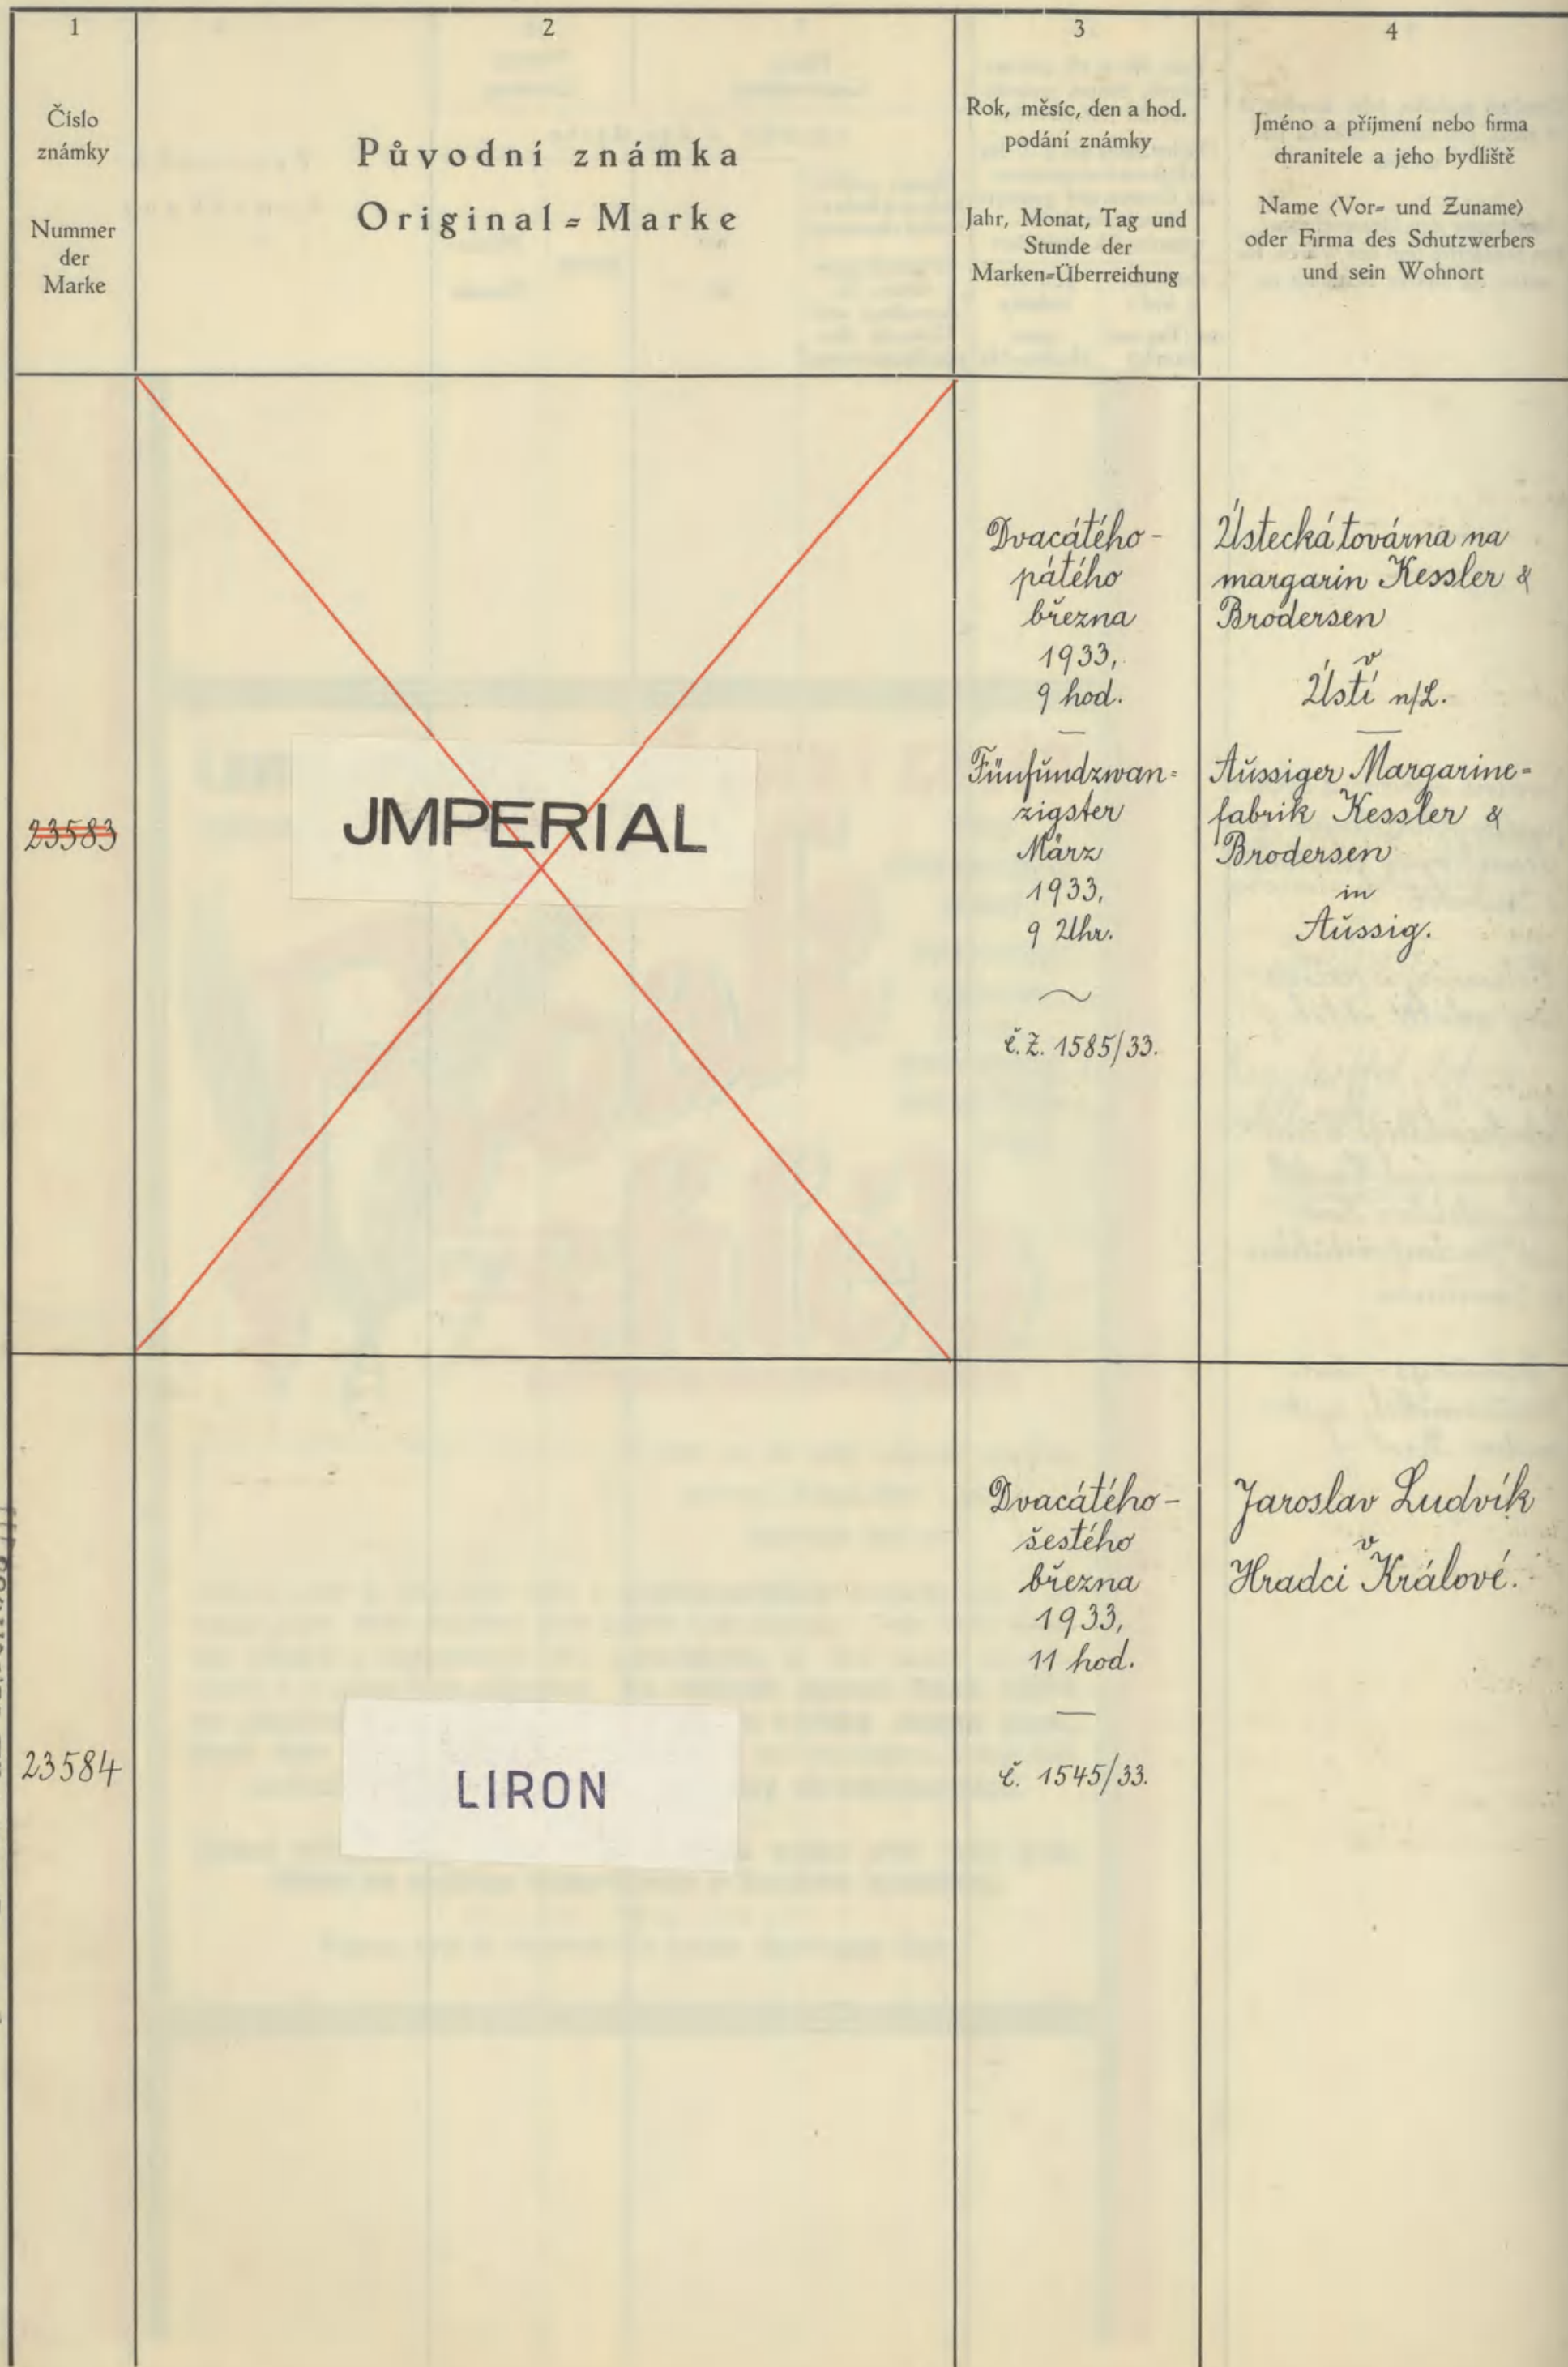 1
Číslo
známky
Nummer
der
Marke
2
Původní známka
Original=Marke
3
Rok, měsíc, den a hod.
podání známky
Jahr, Monat, Tag und
Stunde der
Marken=Überreichung
4
Jméno a příjmení nebo firma
chranitele a jeho bydliště
Name (Vor= und Zuname)
oder Firma des Schutzwerbers
und sein Wohnort
23583
JMPERIAL
Dvacátého-
pátého
března
1933,
9 hod.
Fünfundzwan=
zigster
März
1933,
9 Uhr.
č.Z. 1585/33.
Ústecká továrna na
margarin Kessler &
Brodersen
v
Ústí n/L.
Aussiger Margarine=
fabrik Kessler &
Brodersen
in
Aussig.
23584
LIRON
Dvacátého-
šestého
března
1933,
11 hod.
č. 1545/33.
Jaroslav Ludvík
v
Hradci Králové.